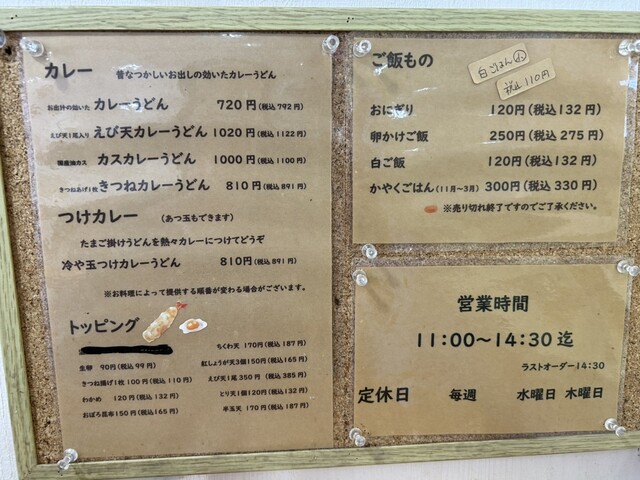 カレー 昔なつかしいお出しの効いたカレーうどん
お出汁の効いた カレーうどん 720円(税込792円)
えび天1尾入り えび天カレーうどん 1020円(税込1122円)
国産油カス カスカレーうどん 1000円(税込1100円)
きつねあげ1枚 きつねカレーうどん 810円(税込891円)
つけカレー (あつ玉もできます)
たまご掛けうどんを熱々カレーにつけてどうぞ
冷や玉つけカレーうどん 810円(税込891円)
※お料理によって提供する順番が変わる場合がございます。
トッピング
ちくわ天 170円(税込187円)
生卵 90円(税込99円) 紅しょうが天3個150円(税込165円)
きつね揚げ1枚100円(税込110円) えび天1尾350円(税込385円)
わかめ 120円(税込132円) とり天1個120円(税込132円)
おぼろ昆布150円(税込165円) 半玉天 170円(税込187円)
ご飯もの
白ごはん小
税込110円
おにぎり 120円(税込132円)
卵かけご飯 250円(税込275円)
白ご飯 120円(税込132円)
かやくごはん(11月〜3月) 300円(税込330円)
※売り切れ終了ですのでご了承ください。
営業時間
11:00〜14:30迄
ラストオーダー14:30
定休日 毎週 水曜日 木曜日